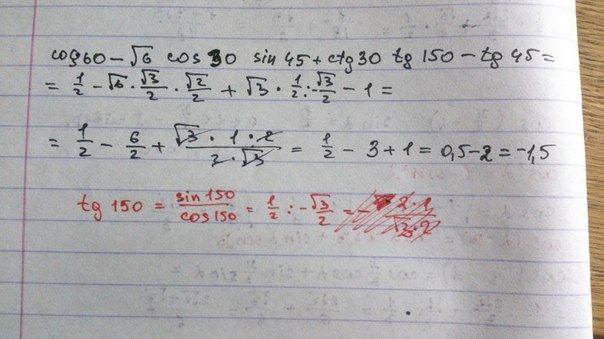 cos 60 - √6 cos 30 sin 45 + ctg 30 tg 150 - tg 45 =
= 1/2 - √6 · √3/2 · √2/2 + √3 · 1/2 : -√3/2 - 1 =
= 1/2 - 6/2 + √3 · 1 · 2 / 2 · √3 = 1/2 - 3 + 1 = 0,5 - 2 = -1,5
tg 150 = sin 150 / cos 150 = 1/2 : -√3/2 =